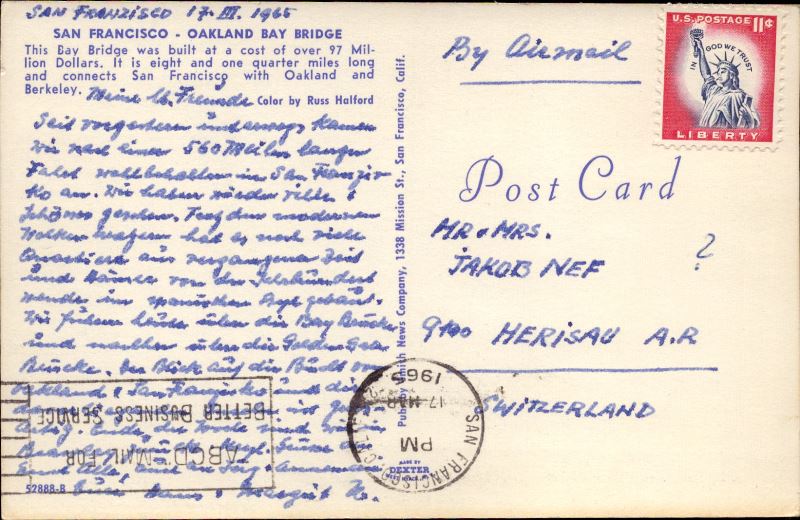 SAN FRANZISCO 17. III. 1965
SAN FRANCISCO - OAKLAND BAY BRIDGE
This Bay Bridge was built at a cost of over 97 Mil-
lion Dollars. It is eight and one quarter miles long
and connects San Francisco with Oakland and
Berkeley.
Color by Russ Halford
Meine lb. Freunde
Seit vorgestern unterwegs kamen
wir nach einer 560 Meilen langen
Fahrt wohlbehalten in San Franzis-
ko an. Wir haben wieder viel
Schönes gesehen. Trotz den modernen
Wolkenkratzern hat es noch viele
Quartiere aus vergangener Zeit
und Häuser von der Jahrhundert
wende im spanischen Styl gebaut.
Wir fuhren heute über die Bay Brücke
und nachher über die Golden Gate
Brücke. Der Blick auf die Bucht von
Oakland & San Franzisko und die
ist
Ende der Woche sind wir in
Hans & Margrit
52888-B
Pub. by Smith News Company, 1338 Mission St., San Francisco, Calif.
MADE BY
DEXTER
By Airmail
U.S. POSTAGE 11¢
IN GOD WE TRUST
LIBERTY
Post Card
MR & MRS.
JAKOB NEF ?
9100 HERISAU A.R
SWITZERLAND
SAN FRANCISCO, CALIF.
PM
17 MAR
1965
"ABCD" MAIL FOR
BETTER BUSINESS SERVICE